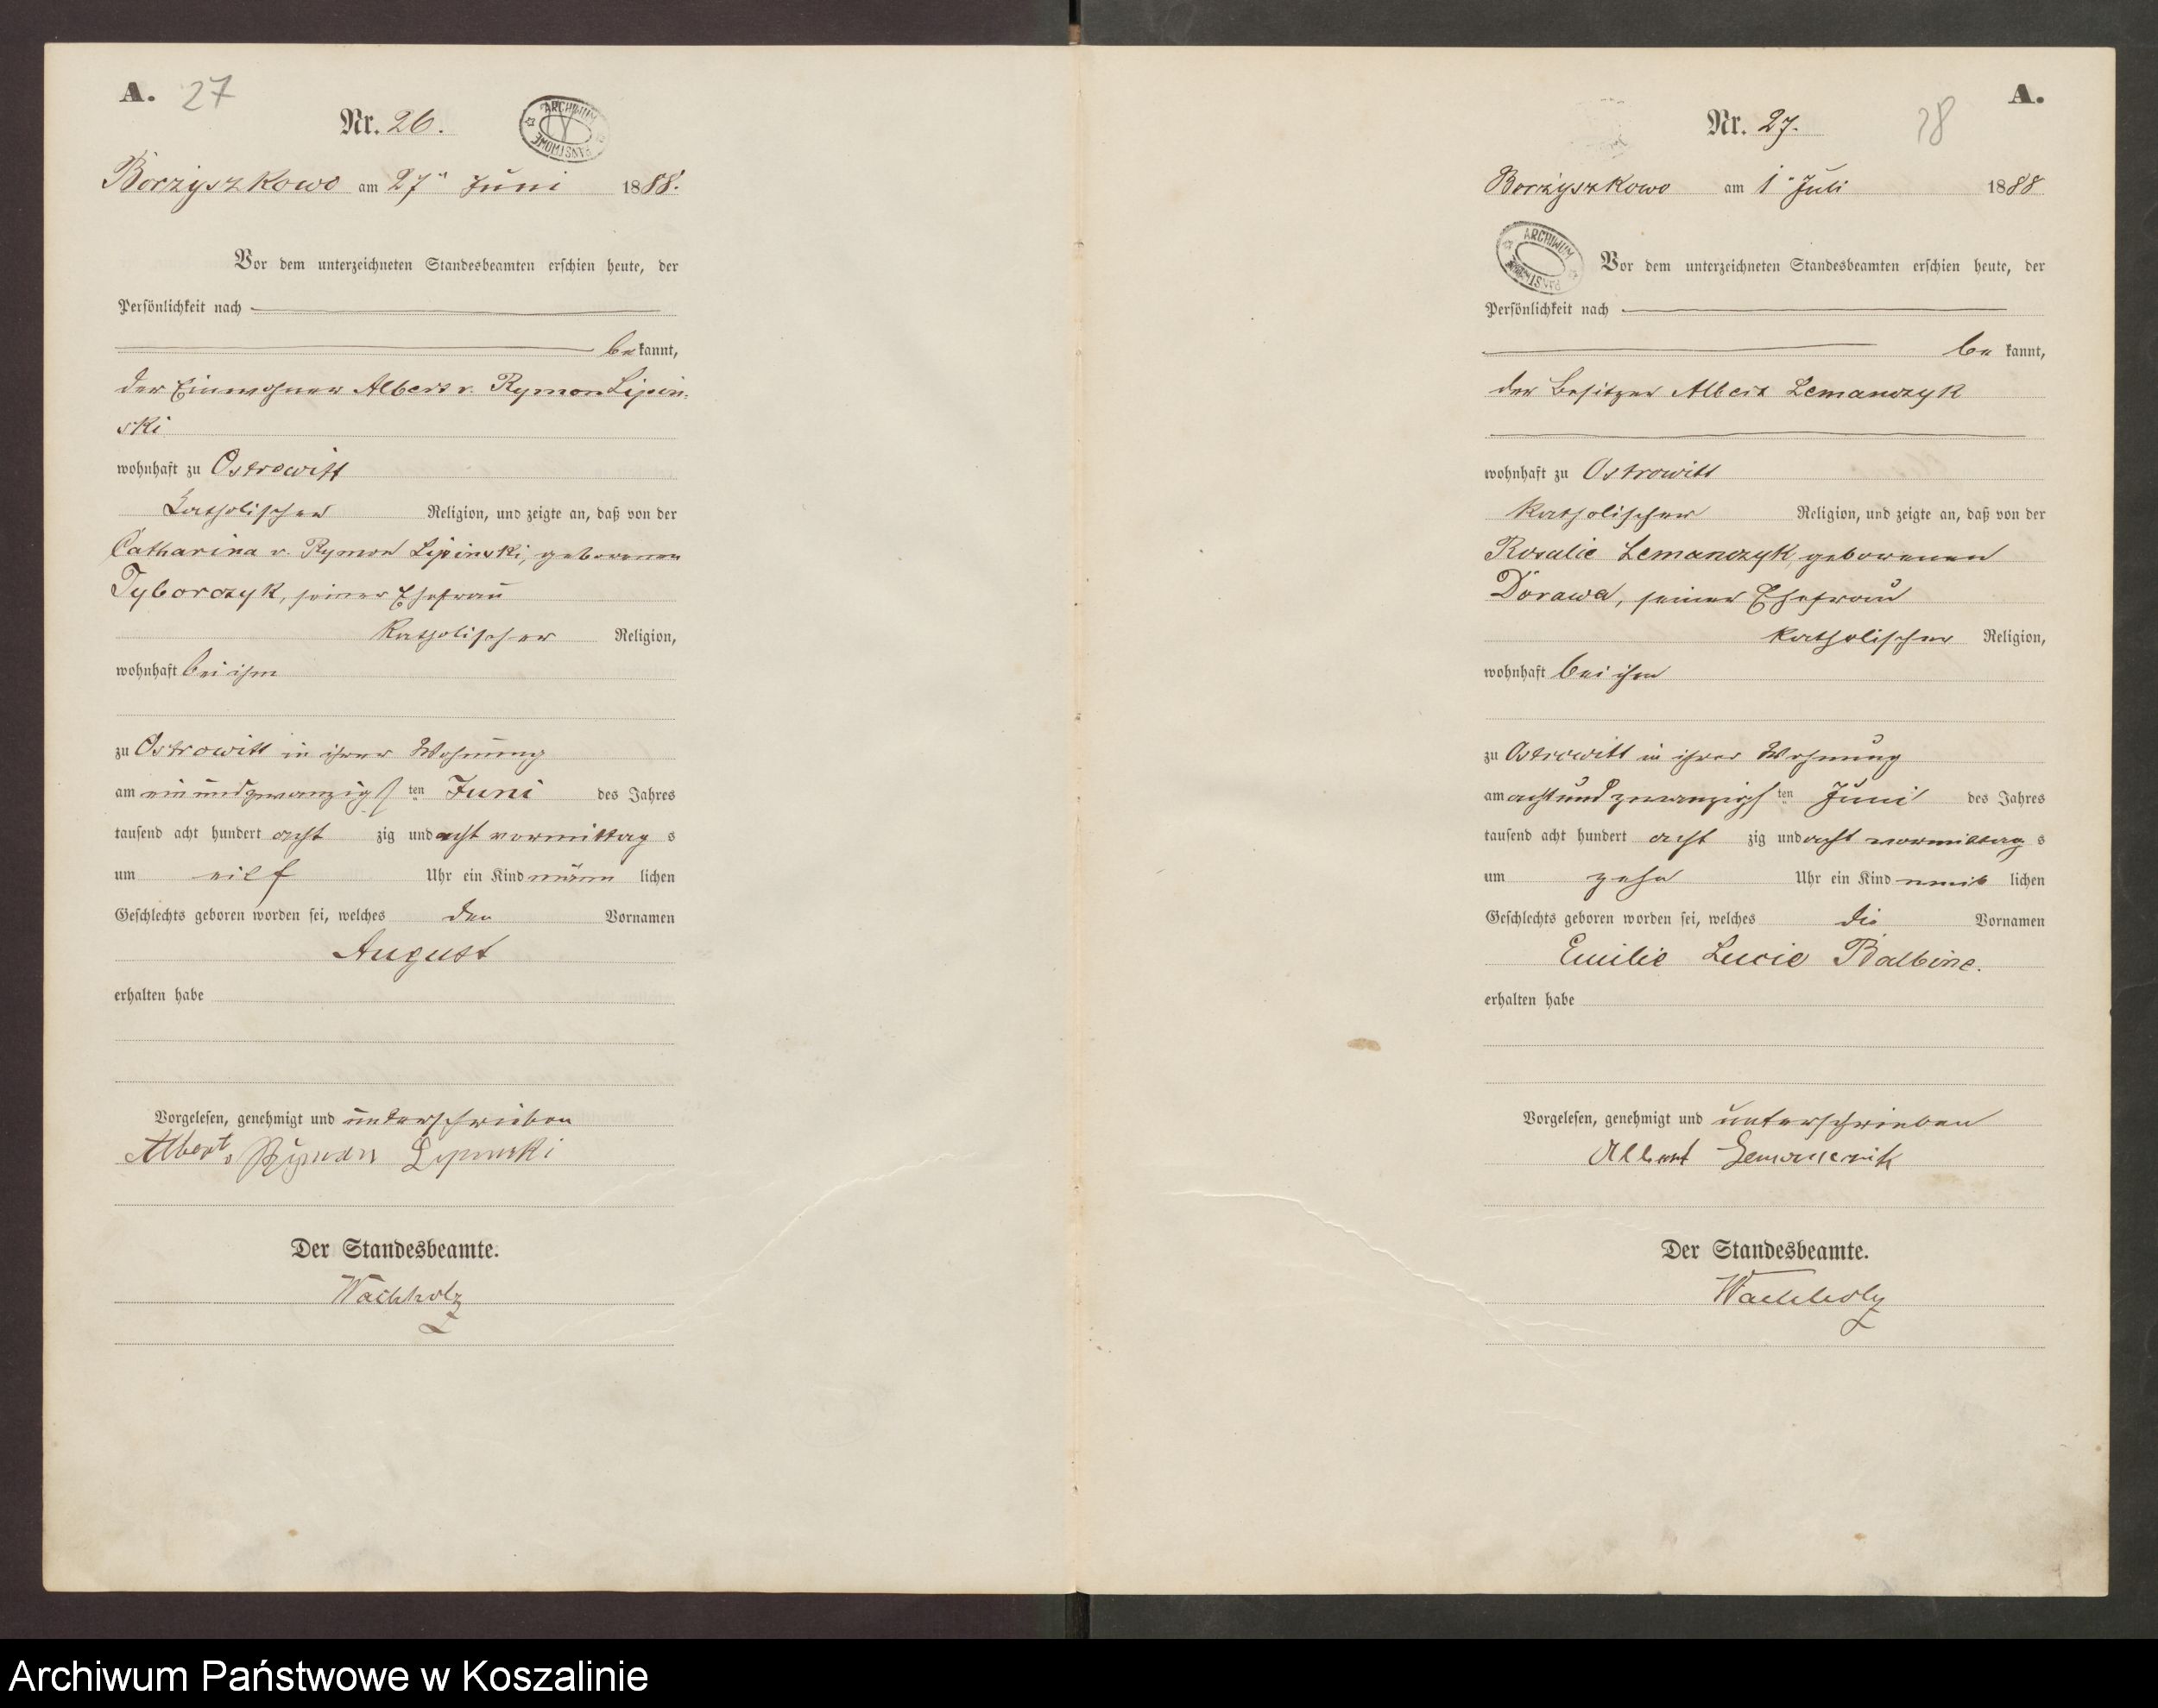 A. 27
Nr. 26.
ARCHIWUM PAŃSTWOWE
Borzyszkowo am 27ⁿ Juni 1888.
Vor dem unterzeichneten Standesbeamten erschien heute, der
Persönlichkeit nach
be kannt,
der Einwohner Albert v. Rymon Lipin-
ski
wohnhaft zu Ostrowitt
katholischer Religion, und zeigte an, daß von der
Catharina v. Rymon Lipinski, geborenen
Tyborczyk, seiner Ehefrau
katholischer Religion,
wohnhaft bei ihm
zu Ostrowitt in ihrer Wohnung
am einundzwanzigsten Juni des Jahres
tausend acht hundert acht zig und acht vormittag s
um eilf Uhr ein Kind männ lichen
Geschlechts geboren worden sei, welches den Vornamen
August
erhalten habe
Vorgelesen, genehmigt und unterschrieben
Albert v Rymon Lipinski
Der Standesbeamte.
Wachholz
A.
28
Nr. 27.
Borzyszkowo am 1ⁿ Juli 1888
ARCHIWUM PAŃSTWOWE
Vor dem unterzeichneten Standesbeamten erschien heute, der
Persönlichkeit nach
be kannt,
der Besitzer Albert Lemanczyk
wohnhaft zu Ostrowitt
katholischer Religion, und zeigte an, daß von der
Rosalie Lemanczyk, geborenen
Dorawa, seiner Ehefrau
katholischer Religion,
wohnhaft bei ihm
zu Ostrowitt in ihrer Wohnung
am achtundzwanzigsten Juni des Jahres
tausend acht hundert acht zig und acht vormittag s
um zehn Uhr ein Kind weib lichen
Geschlechts geboren worden sei, welches die Vornamen
Emilie Lucie Balbine.
erhalten habe
Vorgelesen, genehmigt und unterschrieben
Albert Lemanczik
Der Standesbeamte.
Wachholz
Archiwum Państwowe w Koszalinie